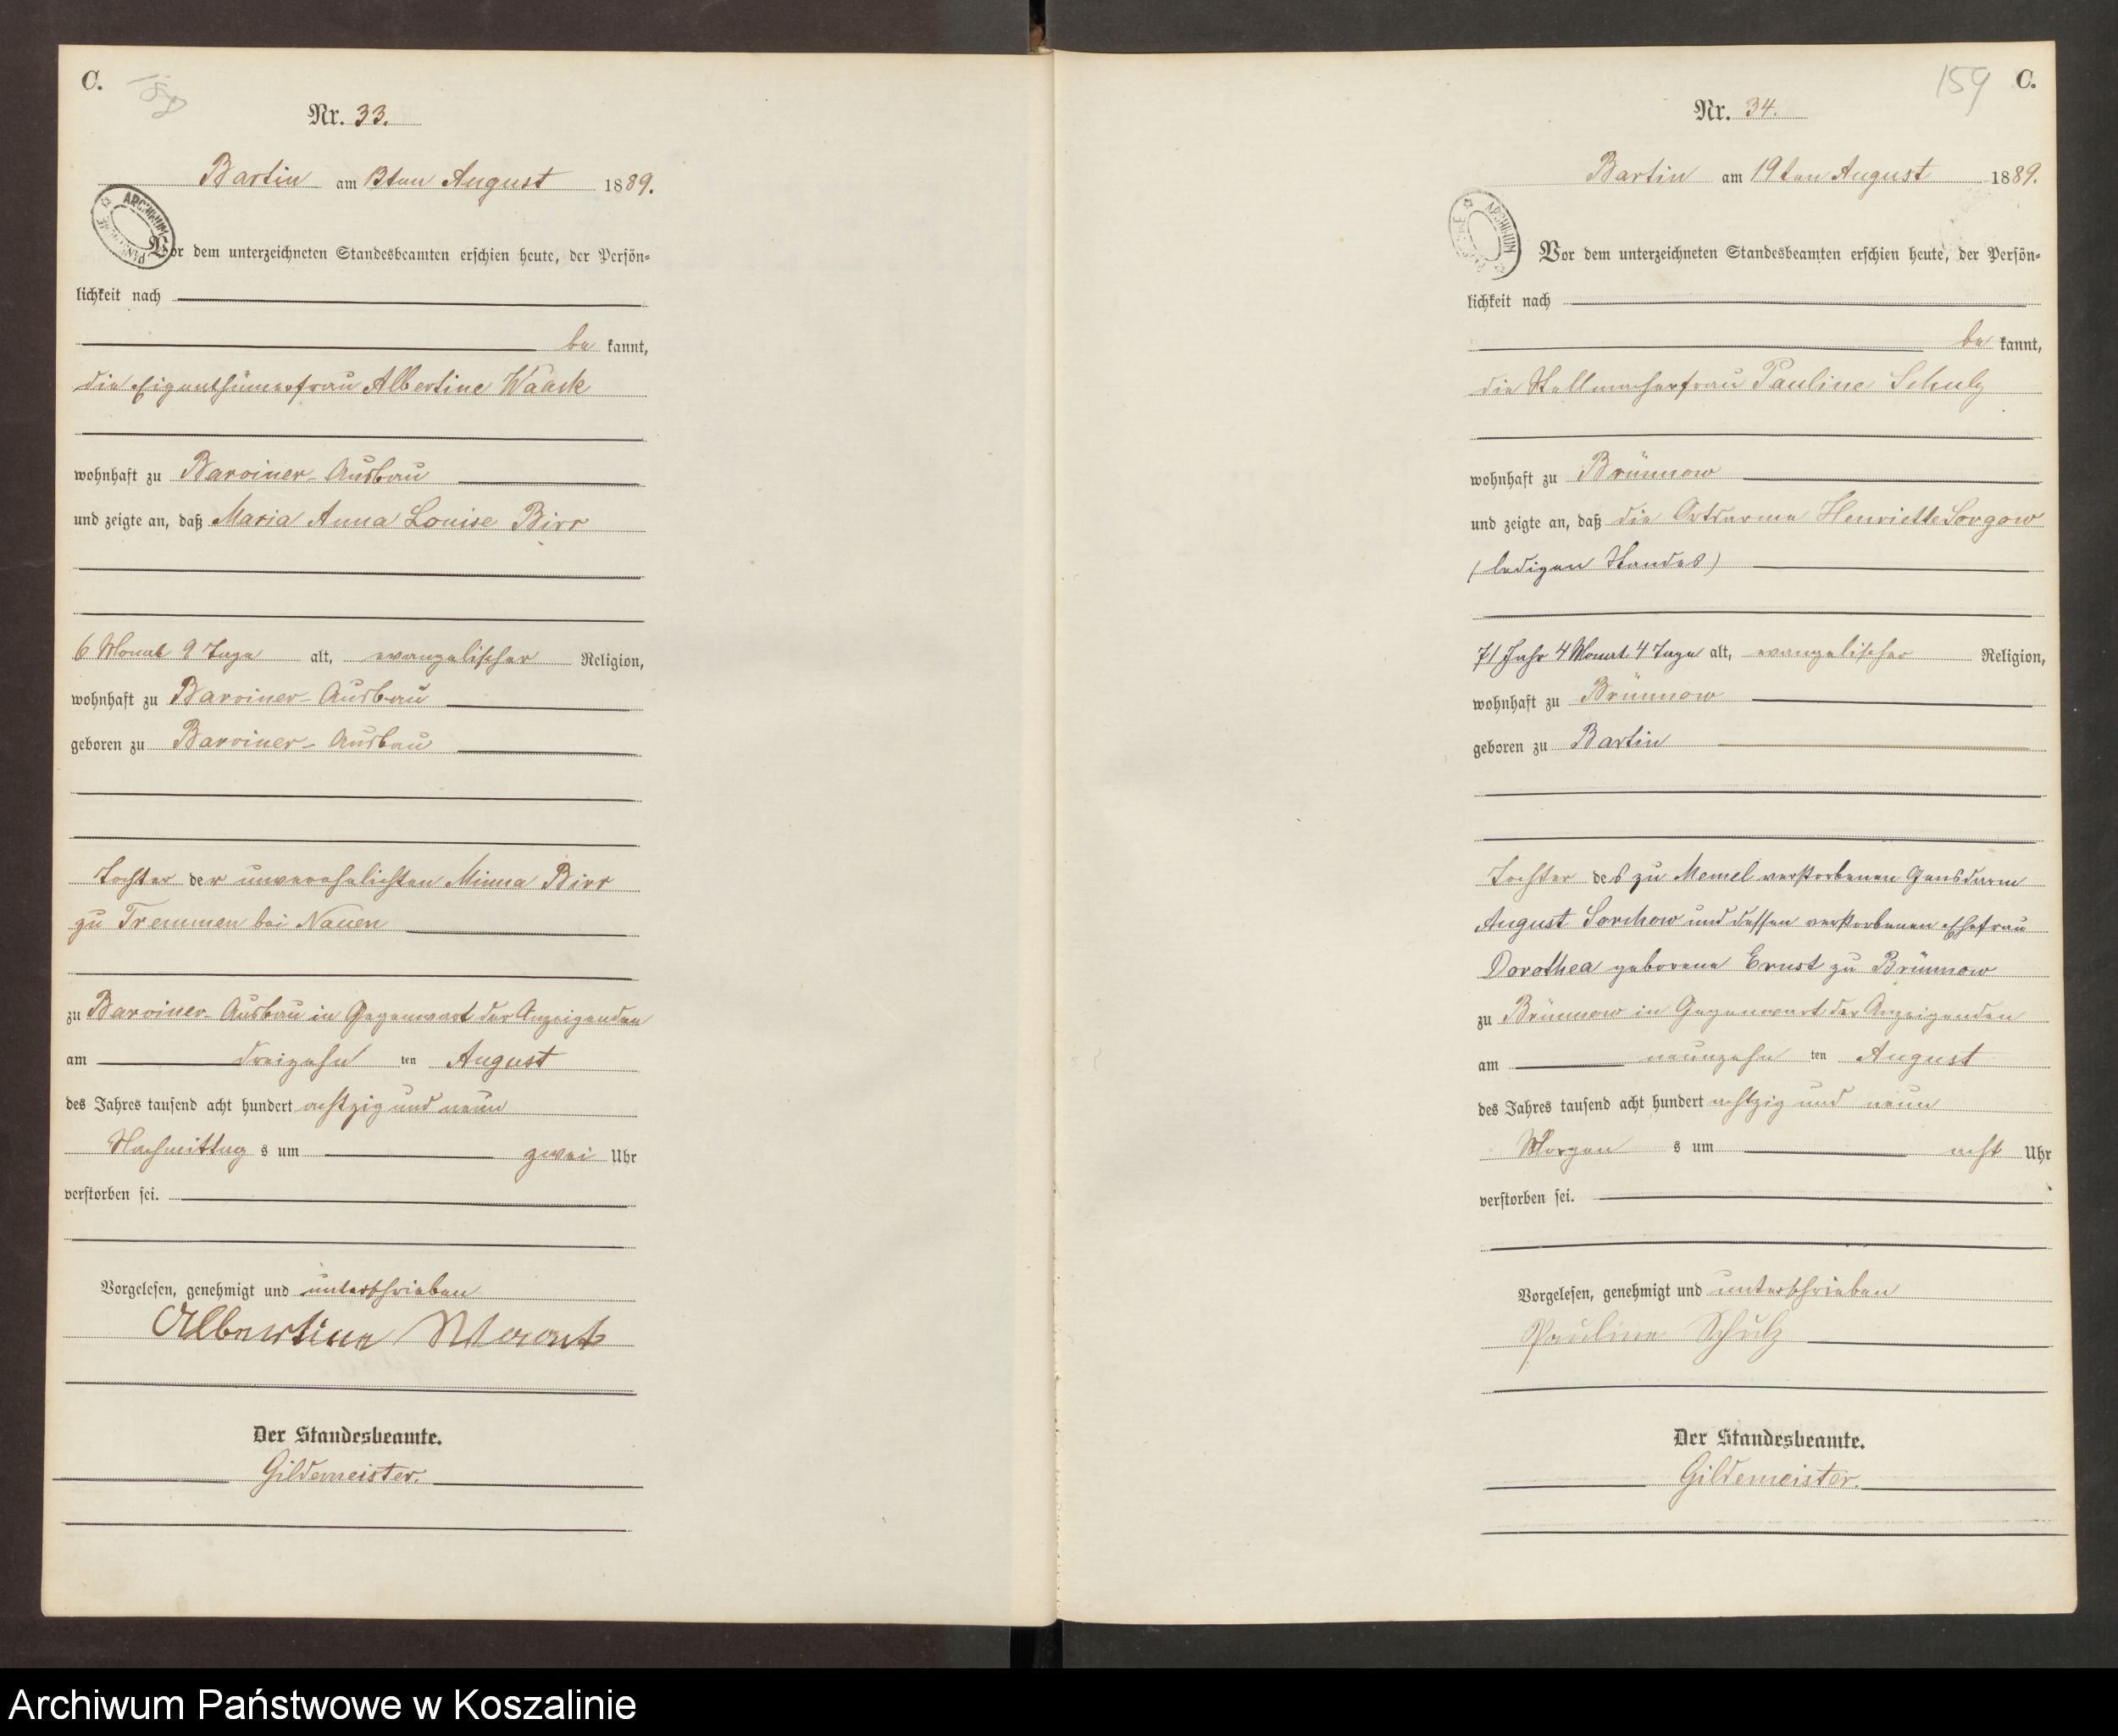 C.
Nr. 33.
Bartin am 13ten August 1889.
Vor dem unterzeichneten Standesbeamten erschien heute, der Persön=
lichkeit nach
be kannt,
die Eigenthümerfrau Albertine Waack
wohnhaft zu Barviner-Ausbau
und zeigte an, daß Maria Anna Louise Birr
6 Monat 9 Tage alt, evangelischer Religion,
wohnhaft zu Barviner-Ausbau
geboren zu Barviner-Ausbau
Tochter der unverehelichten Minna Birr
zu Tremmen bei Nauen
zu Barviner-Ausbau in Gegenwart der Anzeigenden
am dreizehn ten August
des Jahres tausend acht hundert achtzig und neun
Nachmittag s um zwei Uhr
verstorben sei.
Vorgelesen, genehmigt und unterschrieben
Albertine
Der Standesbeamte.
Gildemeister.
159 C.
Nr. 34.
Bartin am 19ten August 1889.
Vor dem unterzeichneten Standesbeamten erschien heute, der Persön=
lichkeit nach
be kannt,
die Stellmacherfrau Pauline Schulz
wohnhaft zu Brünnow
und zeigte an, daß die Ortsarme Henriette Sorgow
(ledigen Standes)
71 Jahr 4 Monat 4 Tage alt, evangelischer Religion,
wohnhaft zu Brünnow
geboren zu Bartin
Tochter des zu Memel verstorbenen Gensdarm
August Sorchow und dessen verstorbenen Ehefrau
Dorothea geborene Ernst zu Brünnow
zu Brünnow in Gegenwart der Anzeigenden
am neunzehn ten August
des Jahres tausend acht hundert achtzig und neun
Morgen s um acht Uhr
verstorben sei.
Vorgelesen, genehmigt und unterschrieben
Pauline Schulz
Der Standesbeamte.
Gildemeister.
Archiwum Państwowe w Koszalinie